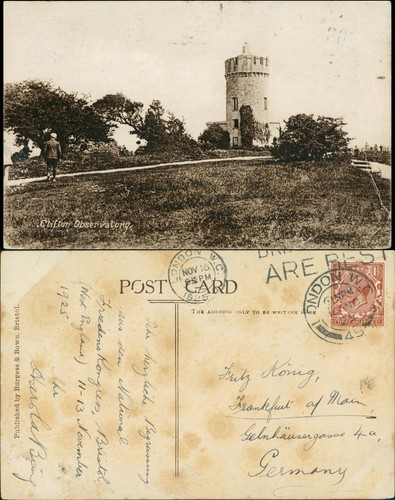 Clifton Observatory.
LONDON. W.C.
NOV 16
6 PM
1925
ARE BEST
LONDON W.C.
45
POST CARD
THE ADDRESS ONLY TO BE WRITTEN HERE
Published by Burgess & Bown, Bristol.
Die herzliche Begrüssung
aus dem National
Friedenskongress, Bristol,
West England, 11-13 November
1925
Mr
Harold Bing
Fritz König,
Frankfurt a/ Main
Gelnhäusergasse 4a,
Germany